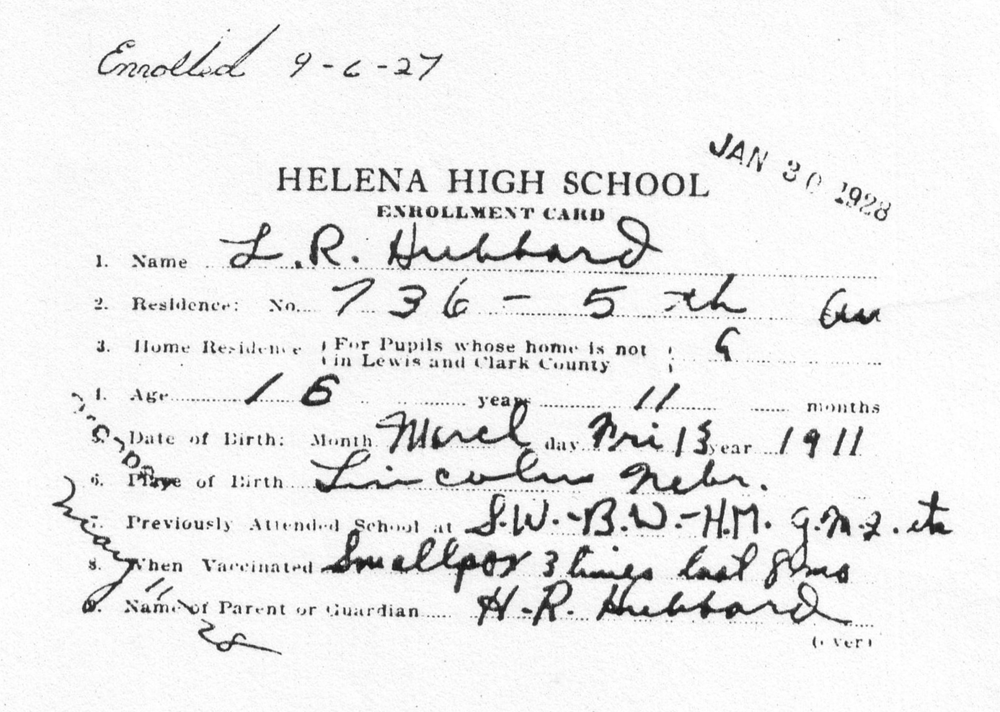 Enrolled 9-6-27
JAN 30 1928
HELENA HIGH SCHOOL
ENROLLMENT CARD
1. Name L.R. Hubbard
2. Residence: No. 736 - 5 th Av
3. Home Residence (For Pupils whose home is not in Lewis and Clark County)
4. Age 16 years 11 months
5. Date of Birth: Month March day Fri 13 year 1911
6. Place of Birth Lincoln Nebr.
7. Previously Attended School at S.W.-B.W.-H.M. etc
8. When Vaccinated Smallpox 3 times last 8 mo
9. Name of Parent or Guardian H.R. Hubbard
(over)
May 11 28